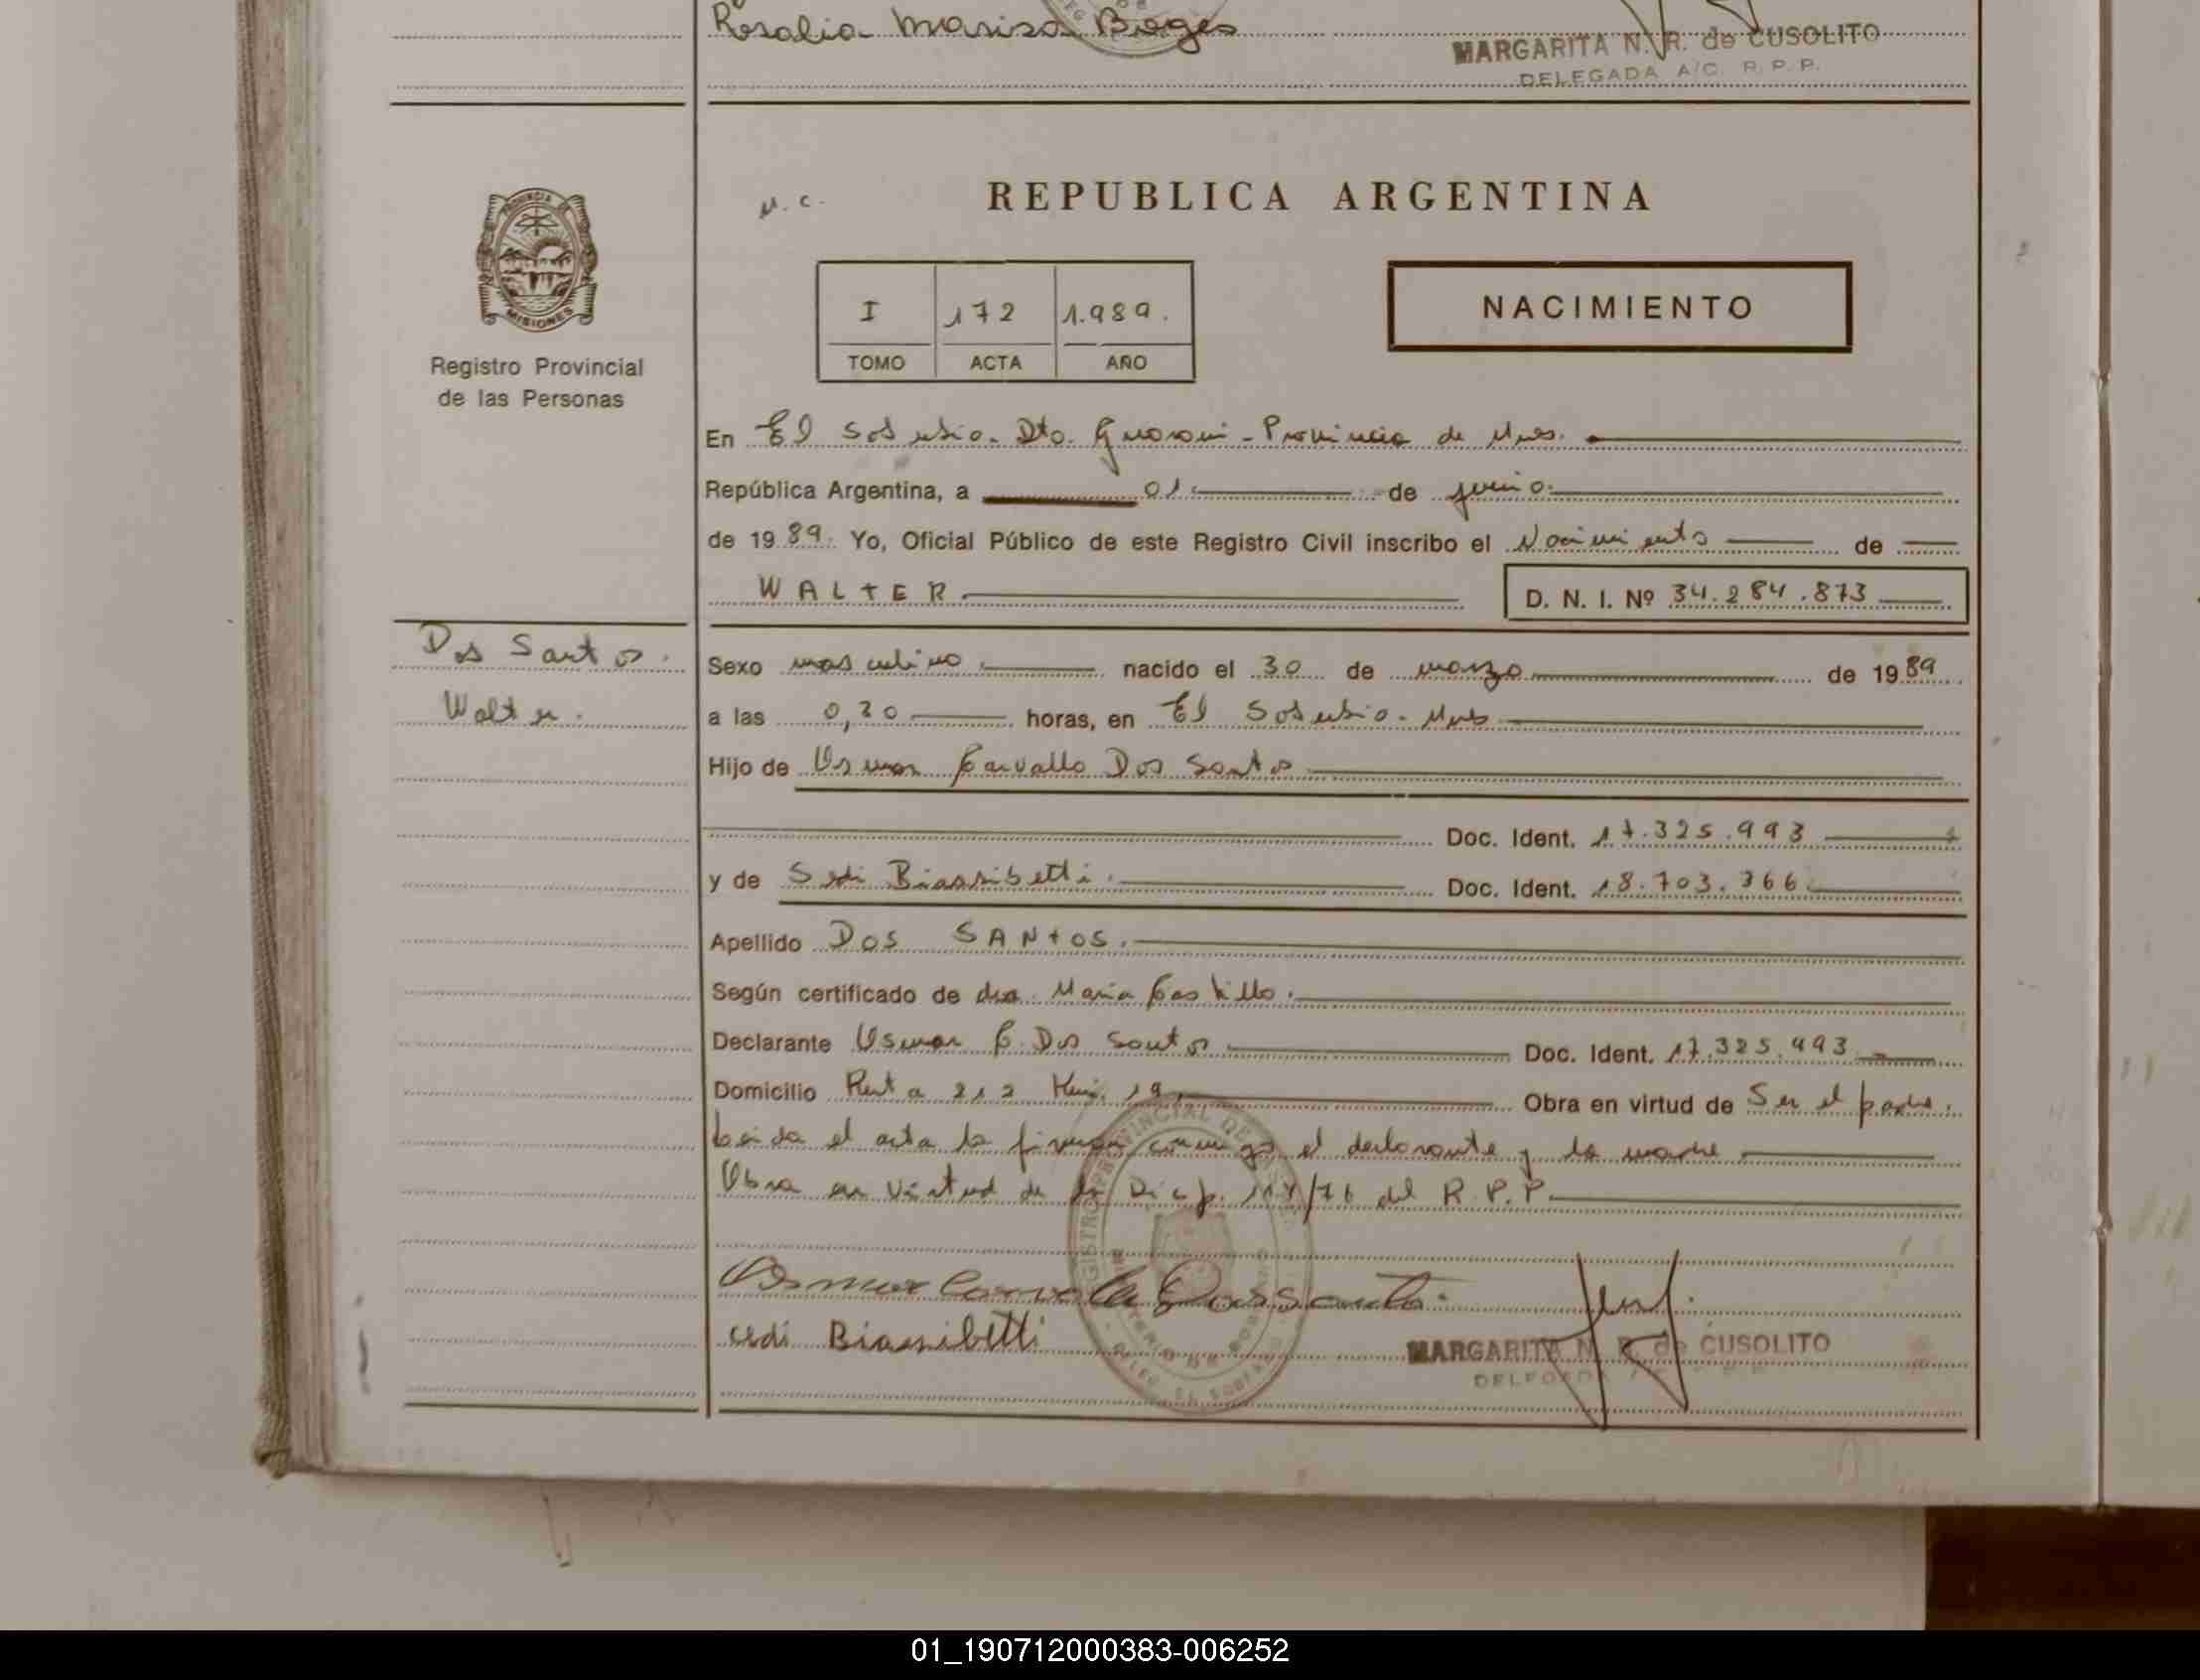 Rosalia Marisa Borges
MARGARITA N. R. de CUSOLITO
DELEGADA A/C. R. P. P.
PROVINCIA DE
MISIONES
Registro Provincial
de las Personas
REPUBLICA ARGENTINA
I 172 1.989.
TOMO ACTA AÑO
NACIMIENTO
En El Soberbio. Dto. Guarani - Provincia de Mnes.
República Argentina, a 01 de junio.
de 1989. Yo, Oficial Público de este Registro Civil inscribo el Nacimiento de
WALTER. D. N. I. Nº 34.284.873
Dos Santos.
Walter.
Sexo masculino. nacido el 30 de marzo de 1989.
a las 0,30 horas, en El Soberbio. Mnes
Hijo de Osmar Carvallo Dos Santos
Doc. Ident. 17.325.993
y de Sedi Biassibetti. Doc. Ident. 18.703.366
Apellido DOS SANTOS.
Según certificado de dra. Maria Castillo.
Declarante Osmar C. Dos Santos Doc. Ident. 17.325.993
Domicilio Ruta 212 Km. 19. Obra en virtud de Ser el padre.
Leida el acta la firman conmigo el declarante y la madre
Obra en virtud de la Disp. /76 del R.P.P.
Osmar Carvallo Dos Santos.
cedi Biassibetti
MARGARITA N. R. de CUSOLITO
DELEGADA
01_190712000383-006252